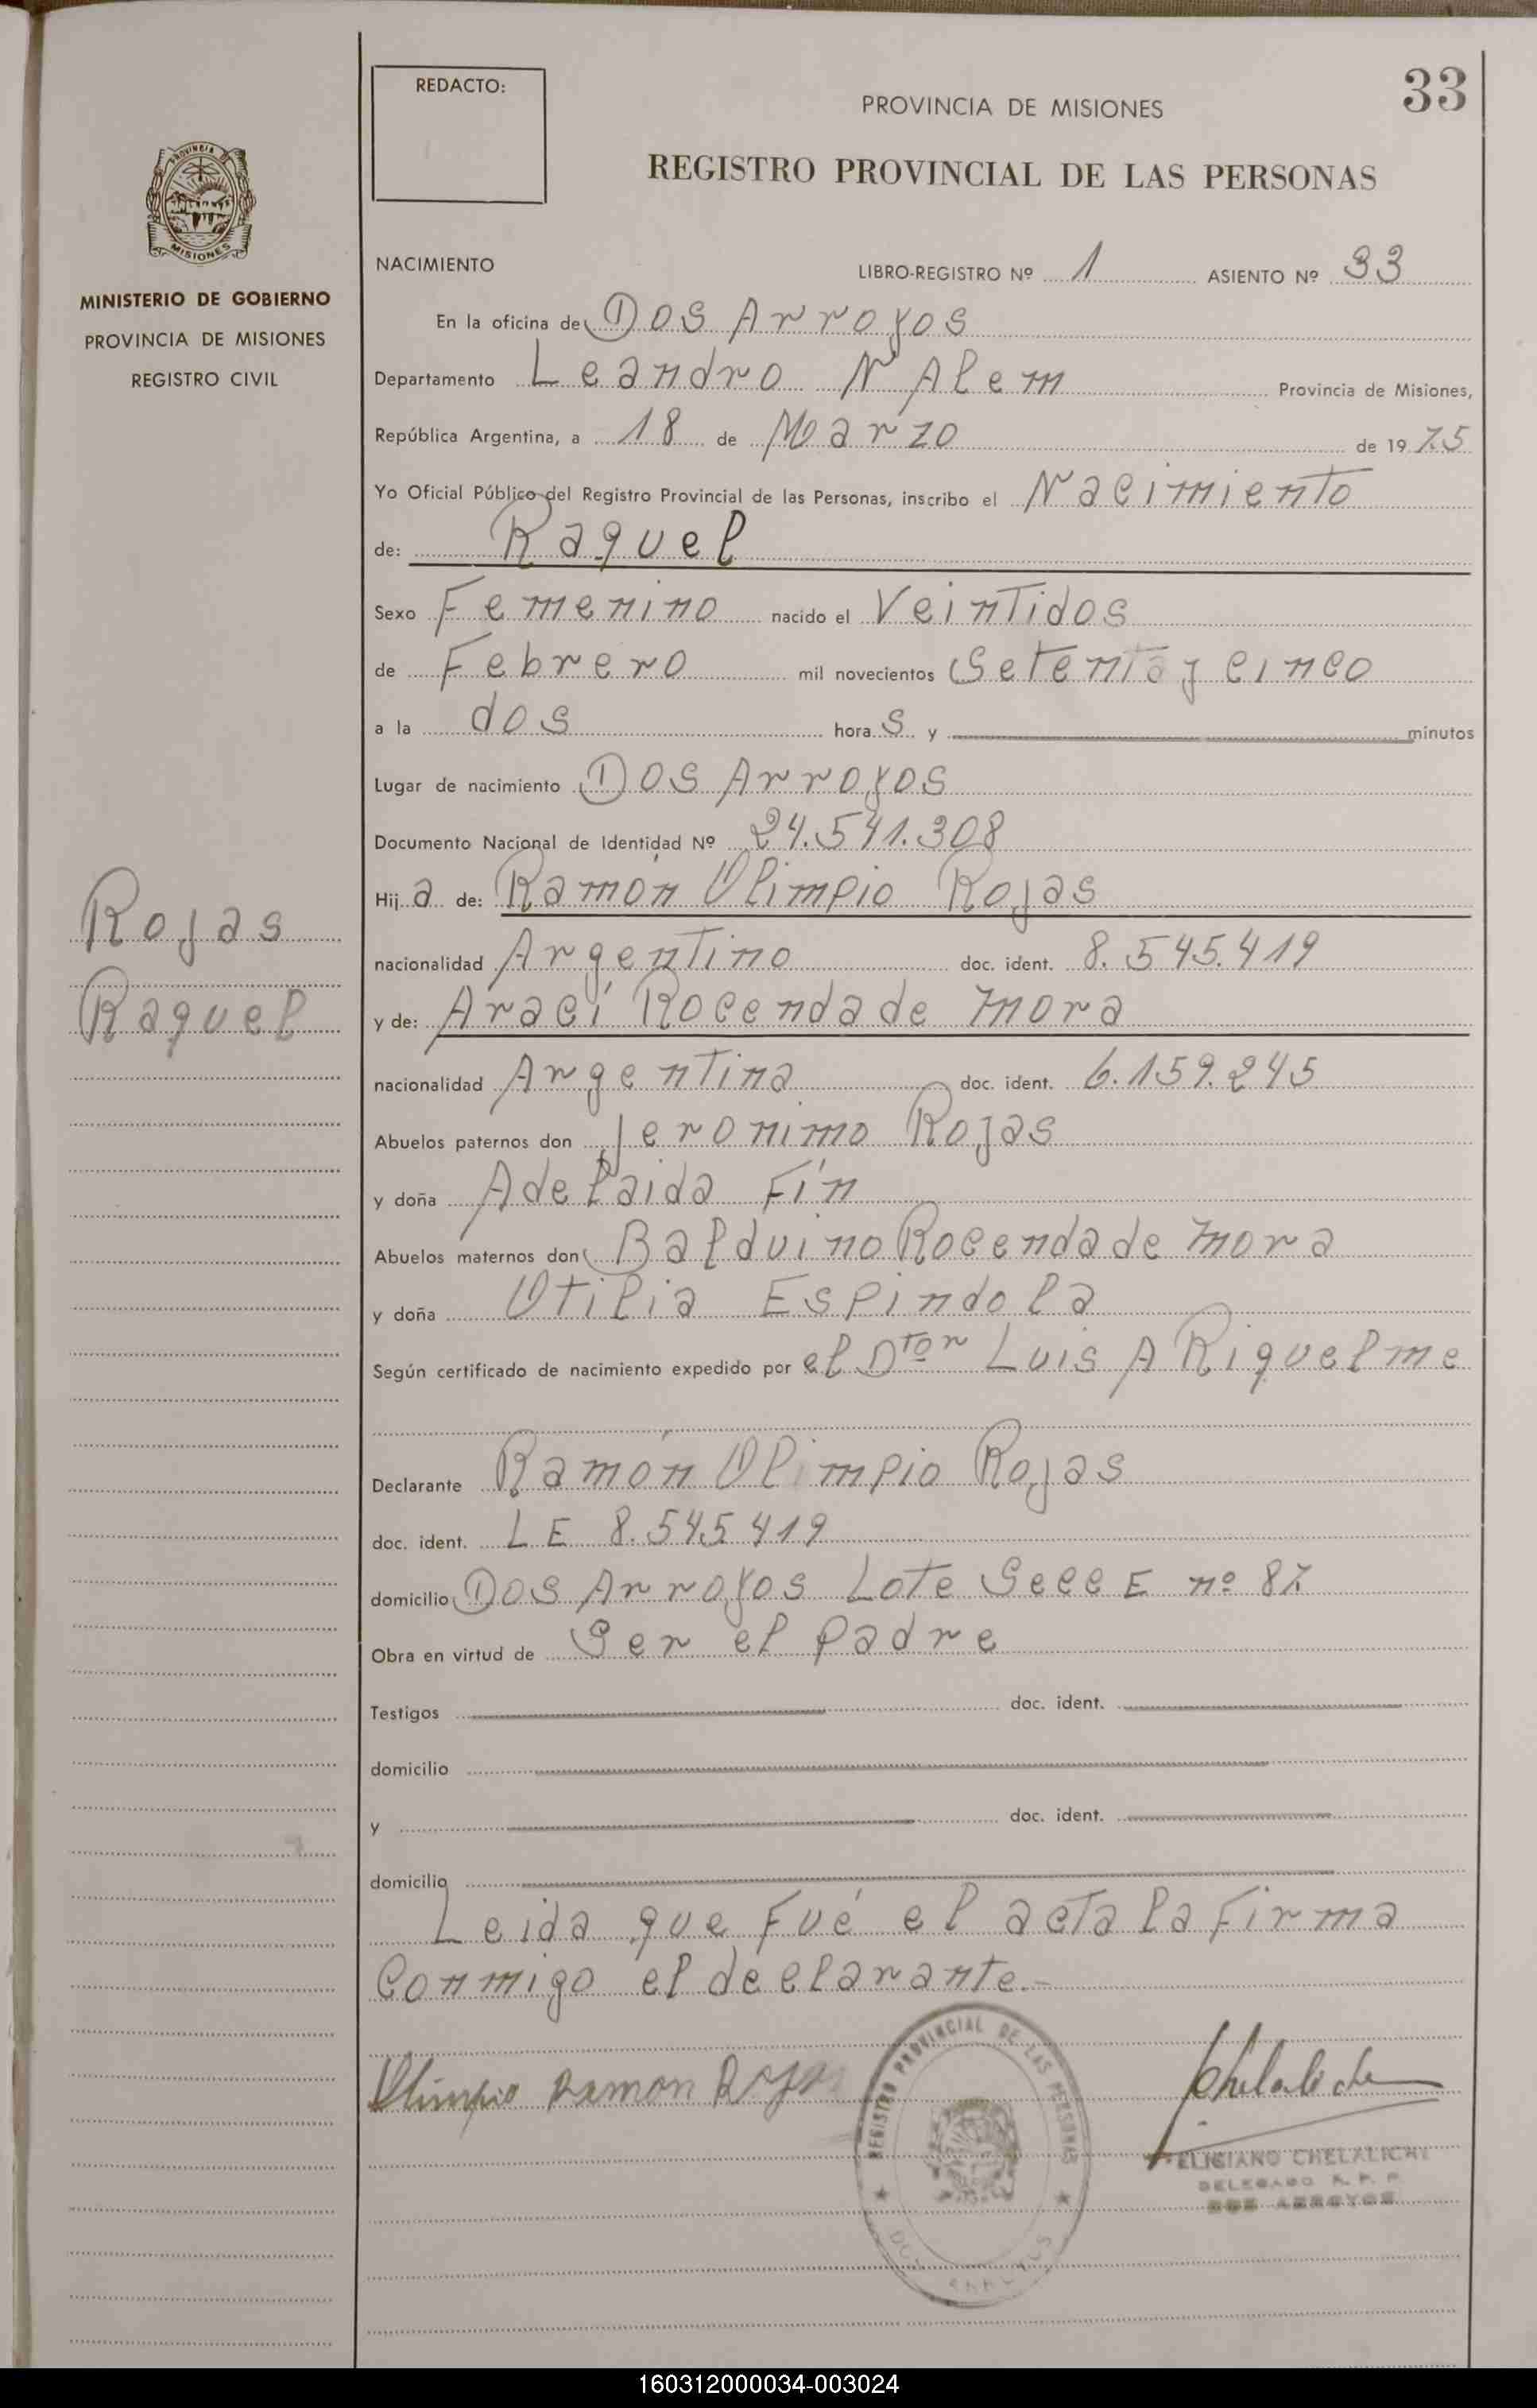 33
REDACTO:
PROVINCIA DE MISIONES
REGISTRO PROVINCIAL DE LAS PERSONAS
PROVINCIA DE
MISIONES
MINISTERIO DE GOBIERNO
PROVINCIA DE MISIONES
REGISTRO CIVIL
NACIMIENTO LIBRO-REGISTRO Nº 1 ASIENTO Nº 33
En la oficina de Dos Arroyos
Departamento Leandro N Alem Provincia de Misiones,
República Argentina, a 18 de Marzo de 1975
Yo Oficial Público del Registro Provincial de las Personas, inscribo el Nacimiento
de: Raquel
Sexo Femenino nacido el Veintidos
de Febrero mil novecientos Setenta y cinco
a la dos horas y minutos
Lugar de nacimiento Dos Arroyos
Documento Nacional de Identidad Nº 24.541.308
Hija de: Ramón Olimpio Rojas
Rojas
nacionalidad Argentino doc. ident. 8.545.419
Raquel
y de: Arací Rocenda de Mora
nacionalidad Argentina doc. ident. 6.159.245
Abuelos paternos don Jeronimo Rojas
y doña Adelaida Fín
Abuelos maternos don Balduino Rocenda de Mora
y doña Otilia Espindola
Según certificado de nacimiento expedido por el Dtor Luis A Riquelme
Declarante Ramón Olimpio Rojas
doc. ident. LE 8.545419
domicilio Dos Arroyos Lote Secc E nº 87
Obra en virtud de Ser el padre
Testigos doc. ident.
domicilio
y doc. ident.
domicilio
Leida que Fué el acta la Firma
Conmigo el declarante.-
Olimpio Ramon Rojas
REGISTRO PROVINCIAL DE LAS PERSONAS
DOS ARROYOS
Chelaliche
FELICIANO CHELALICHE
DELEGADO R. P. P.
DOS ARROYOS
160312000034-003024